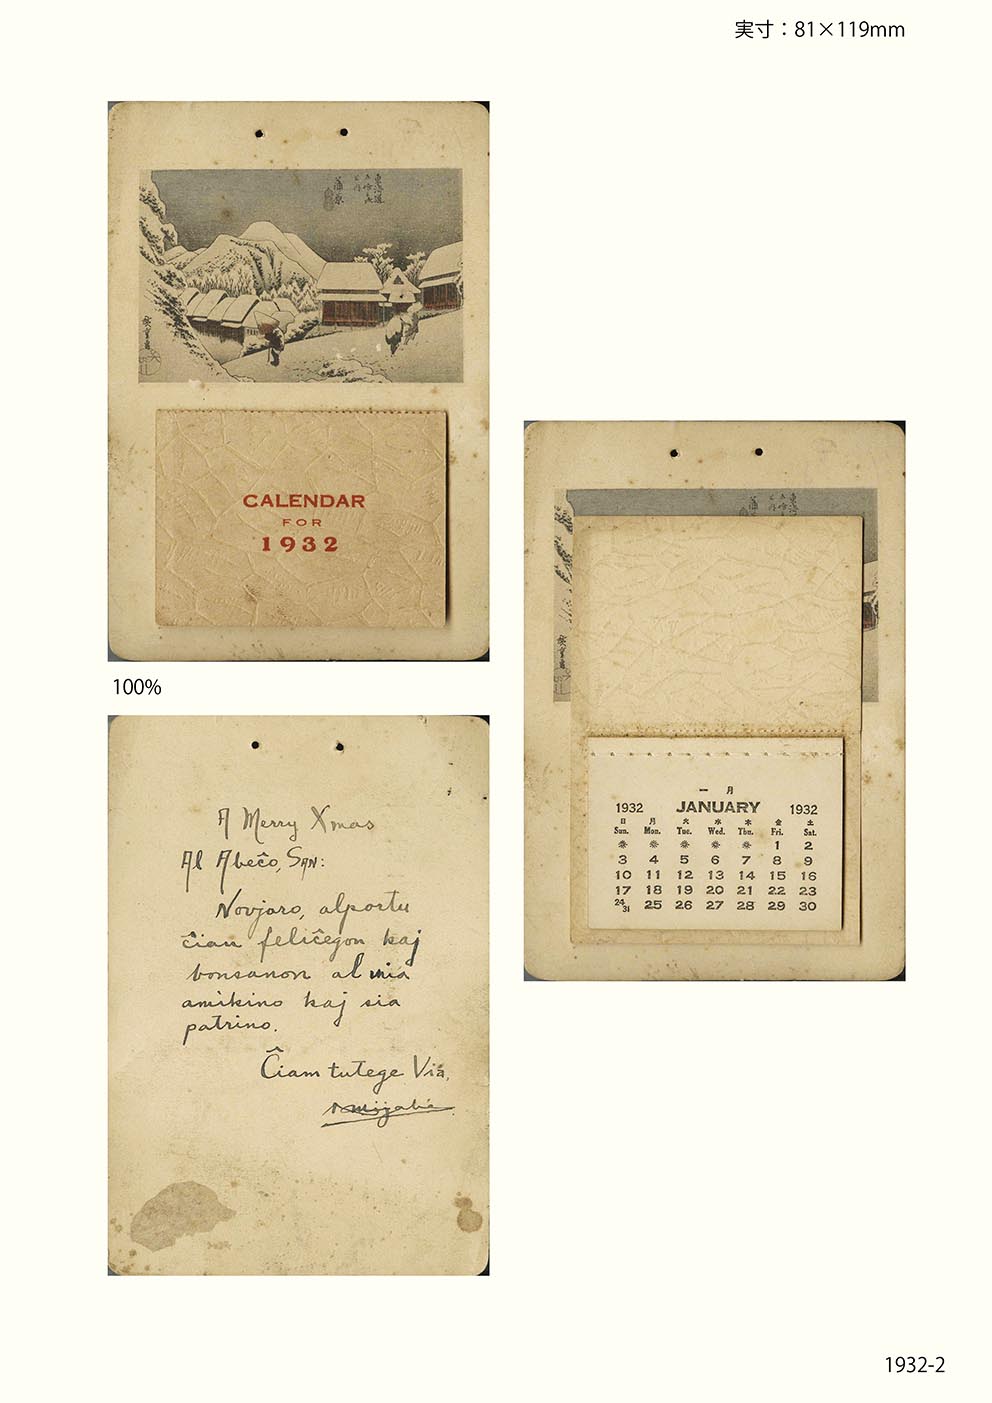 実寸：81×119mm
東海道
五拾三次
之内
蒲原
廣重画
CALENDAR
FOR
1932
100%
一月
1932 JANUARY 1932
日 月 火 水 木 金 土
Sun. Mon. Tue. Wed. Thu. Fri. Sat.
1 2
3 4 5 6 7 8 9
10 11 12 13 14 15 16
17 18 19 20 21 22 23
24/31 25 26 27 28 29 30
A Merry Xmas
Al Abeĉo, SAN:
Novjaro, alportu
ĉian feliĉegon kaj
bonsanon al mia
amikino kaj sia
patrino.
Ĉiam tutege Via,
1932-2